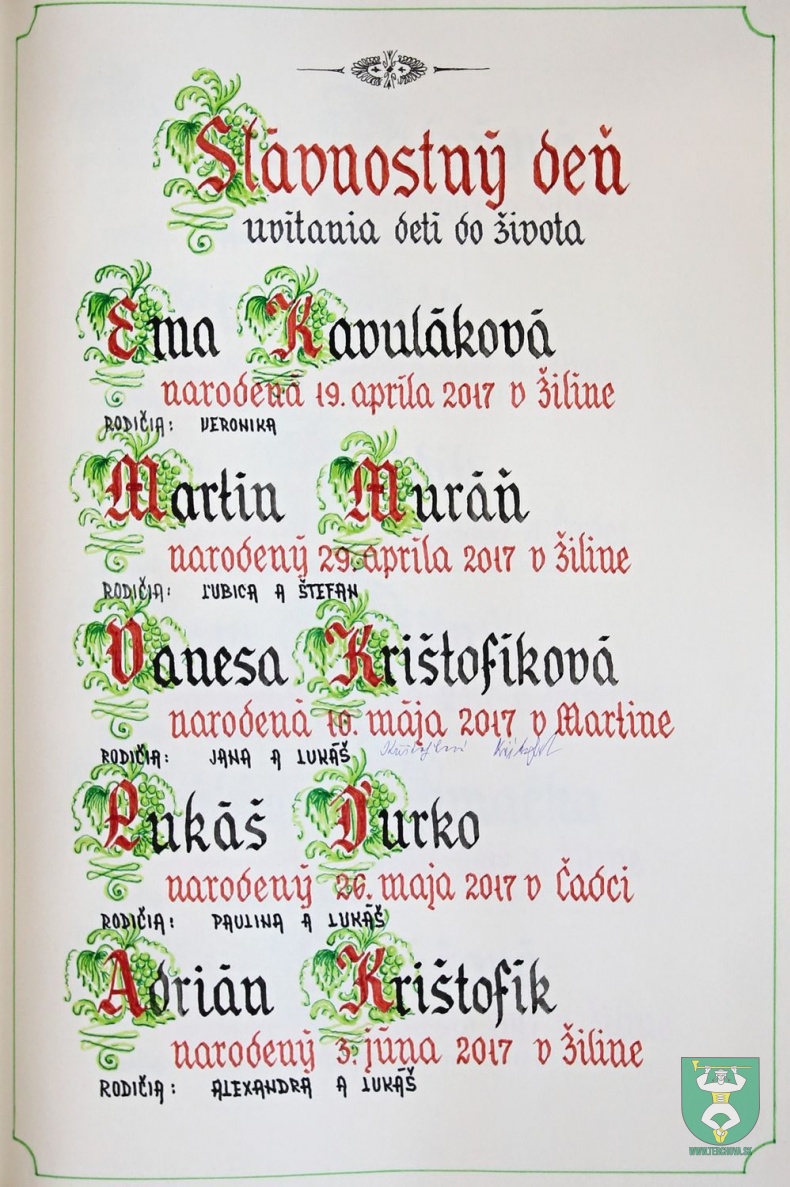 Slávnostný deň
uvítania detí do života
Ema Kavuláková
narodená 19. apríla 2017 v Žiline
RODIČIA: VERONIKA
Martin Muráň
narodený 29. apríla 2017 v Žiline
RODIČIA: ĽUBICA A ŠTEFAN
Vanesa Krištofíková
narodená 10. mája 2017 v Martine
RODIČIA: JANA A LUKÁŠ
Lukáš Ďurko
narodený 26. maja 2017 v Čadci
RODIČIA: PAULINA A LUKÁŠ
Adrián Krištofík
narodený 3. júna 2017 v Žiline
RODIČIA: ALEXANDRA A LUKÁŠ
WWW.TERCHOVA.SK